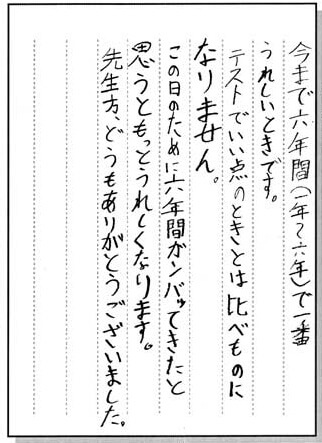 今まで六年間(一年〜六年)で一番
うれしいときです。
テストでいい点のときとは比べものに
なりません。
この日のために六年間ガンバッてきたと
思うともっとうれしくなります。
先生方、どうもありがとうございました。